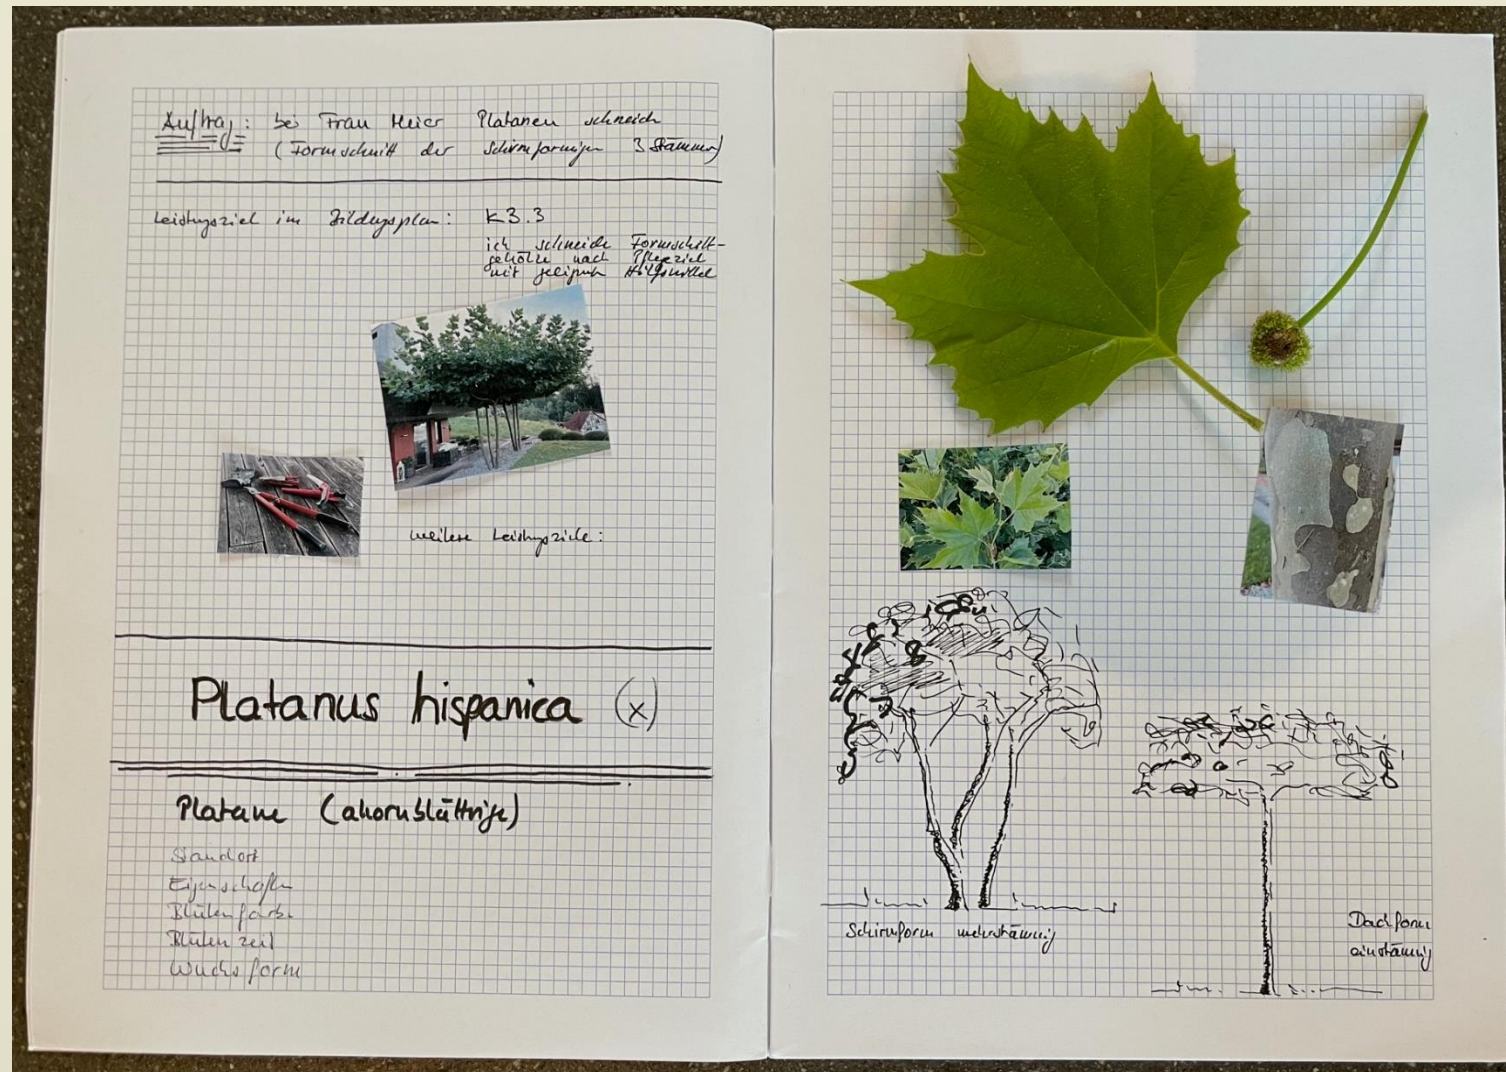 Auftrag: bei Frau Meier Platanen schneid
(Formschnitt der schirmförmigen 3 Stämmer)
Leistungsziel im Bildungsplan: K3.3
ich schneide Formschnitt-
gehölze nach Pflegeziel
mit geeigneten Hilfsmittel
weitere Leistungsziele:
Platanus hispanica (x)
Platane (ahornblättrige)
Standort
Eigenschaften
Blütenfarbe
Blütenzeit
Wuchsform
Schirmform mehrstämmig
Dachform
einstämmig